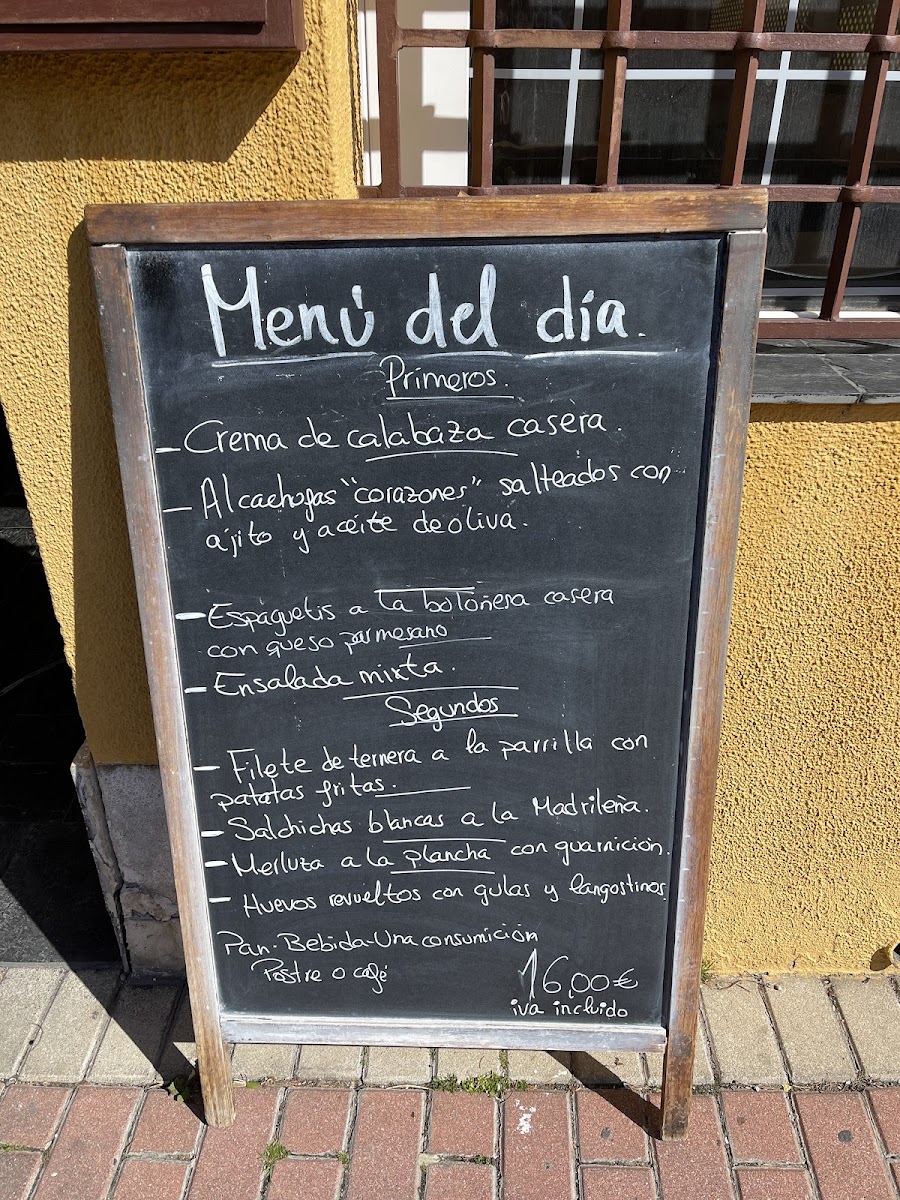 Menú del día.
Primeros.
- Crema de calabaza casera.
- Alcachofas "corazones" salteados con
ajito y aceite de oliva.
- Espaguetis a la boloñesa casera
con queso parmesano
- Ensalada mixta.
Segundos
- Filete de ternera a la parrilla con
patatas fritas.
- Salchichas blancas a la Madrileña.
- Merluza a la plancha con guarnición.
- Huevos revueltos con gulas y langostinos
Pan - Bebida - Una consumición
Postre o café
16,00€
iva incluido